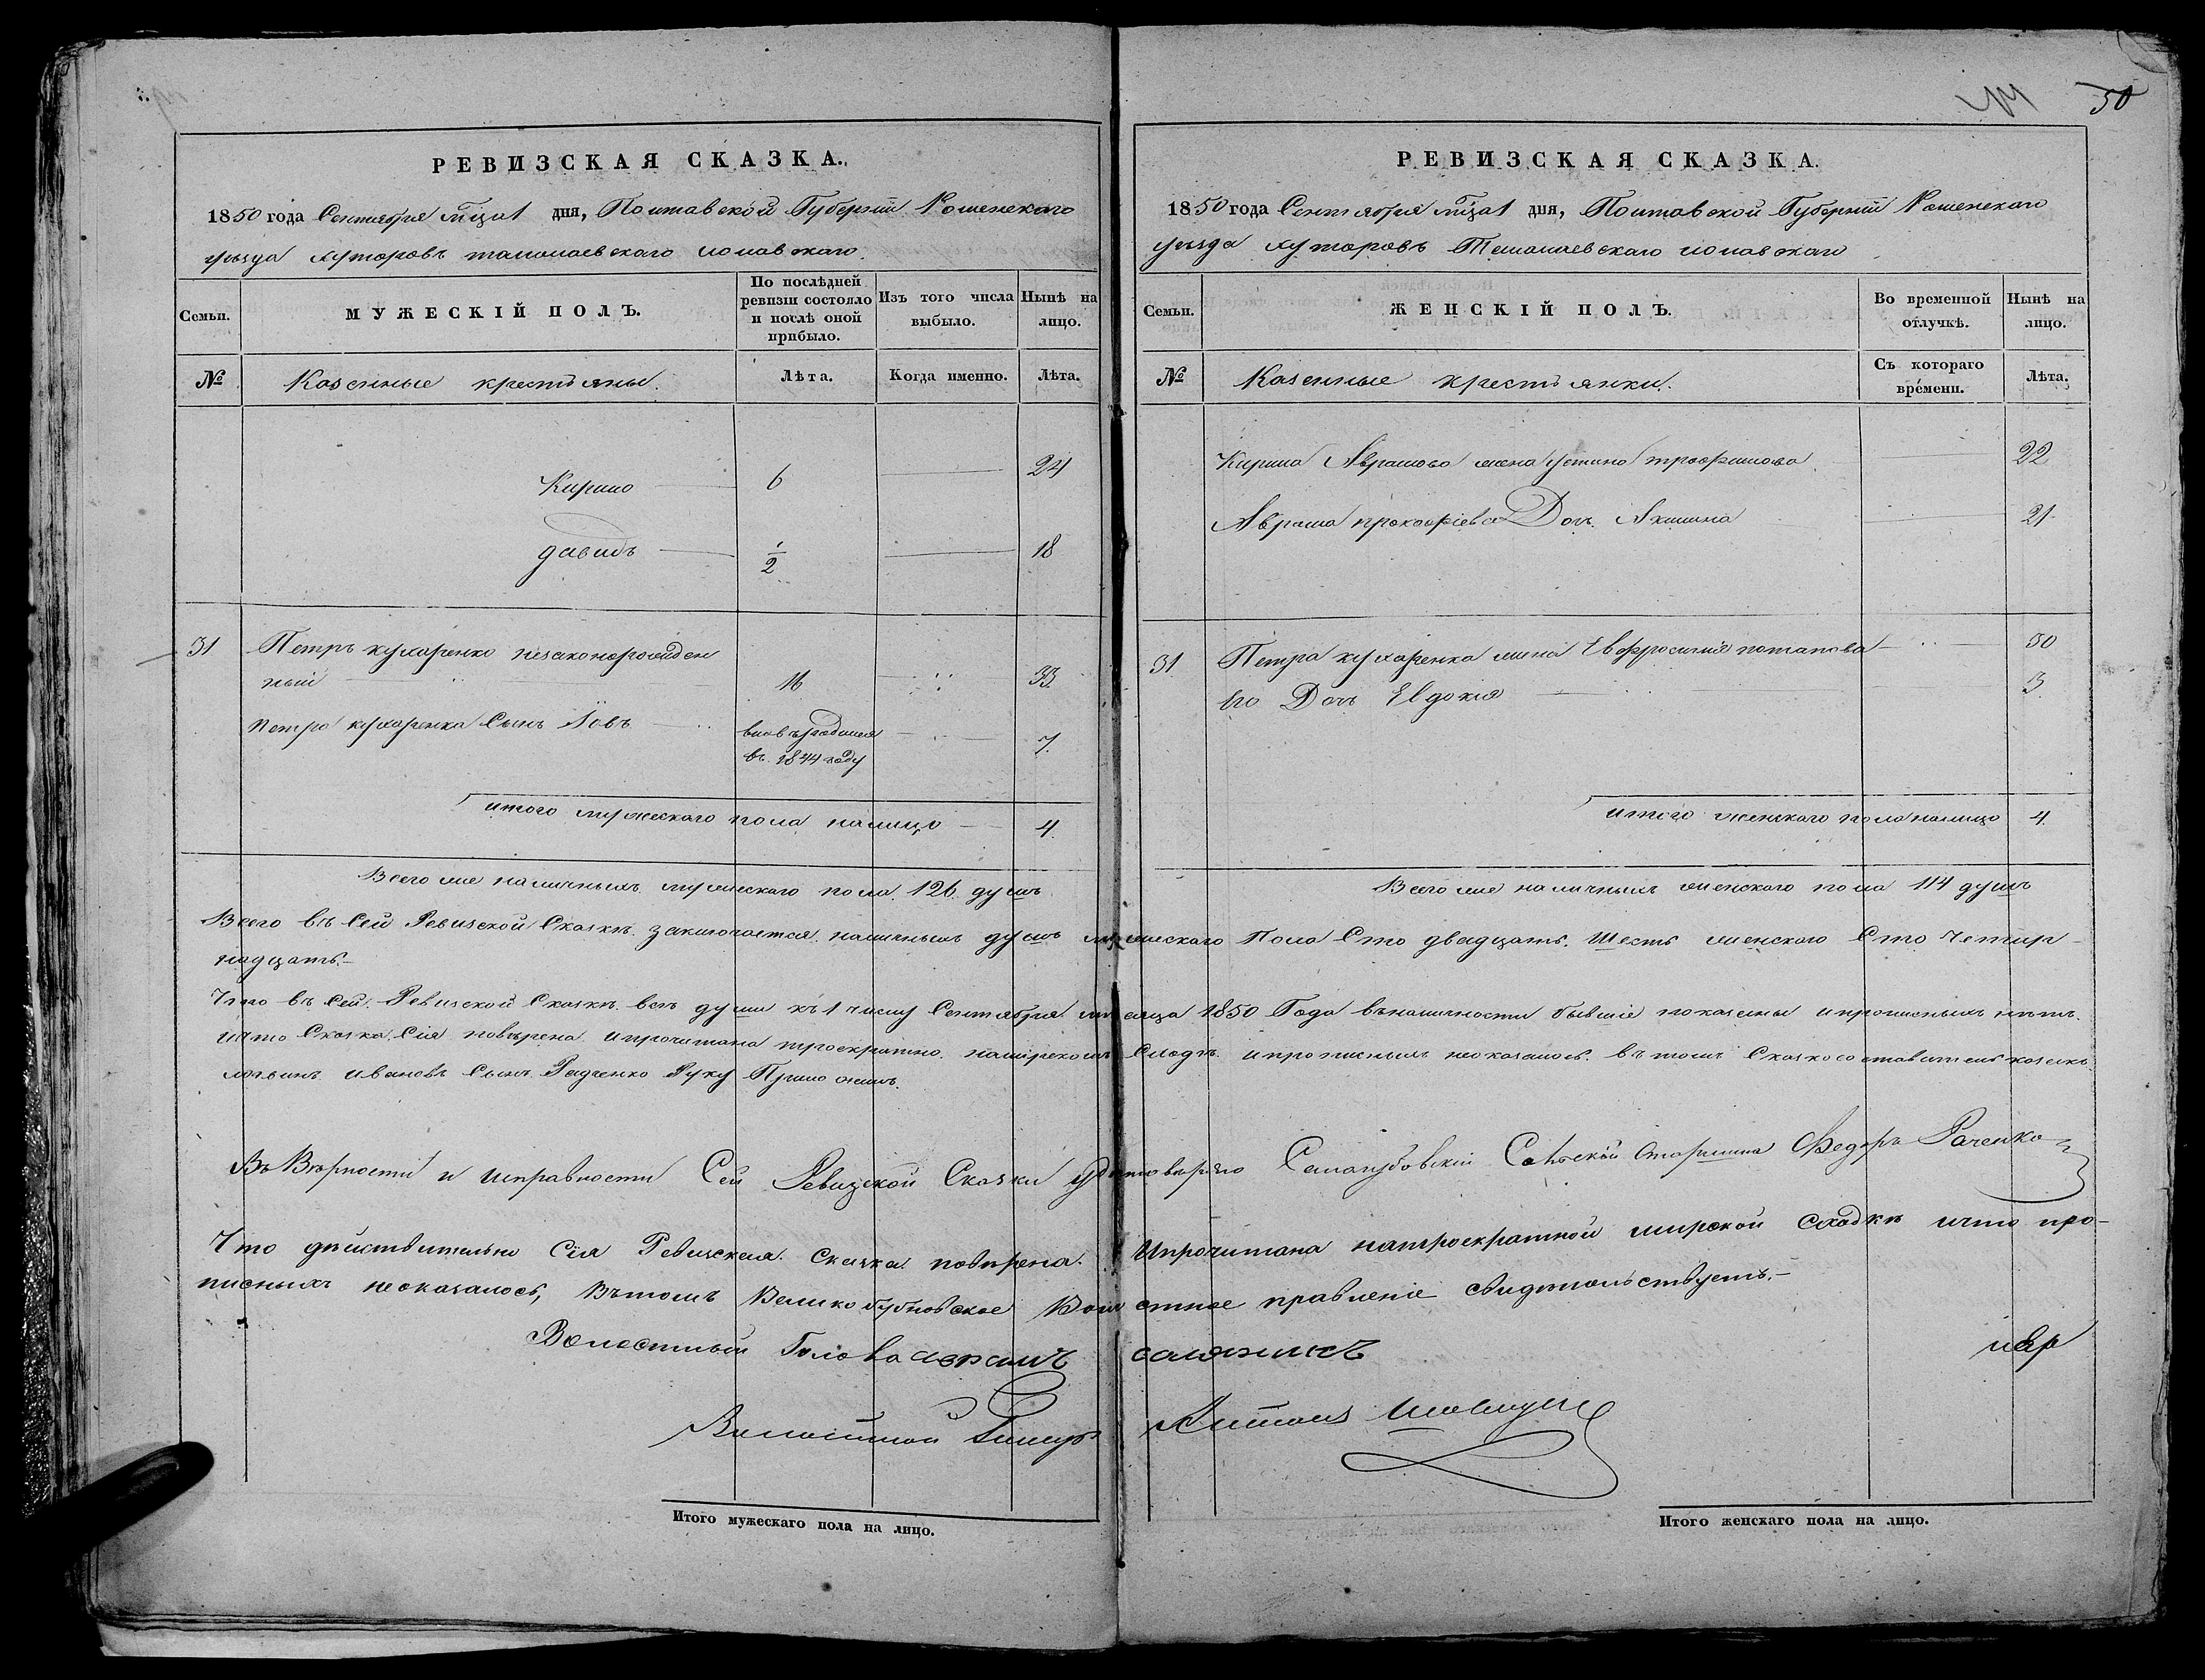 50
РЕВИЗСКАЯ СКАЗКА.
1850 года Сентября мца 1 дня, Полтавской Губерніи Роменского
уезда хуторовъ
Семьи.
МУЖЕСКІЙ ПОЛЪ.
По послѣдней ревизіи состояло и послѣ оной прибыло.
Изъ того числа выбыло.
Нынѣ на лицо.
№
Казенные крестьяны.
Лѣта.
Когда именно.
Лѣта.
Кирило 6 24
давидъ 1/2 18
31 Петръ кухаренко незаконорожден
ный 16 33
Петра кухаренка Сынъ Іовъ вновърожденъ 7
въ 1844 году
итого мужескаго пола налицо 4
Всего же наличныхъ мужескаго пола 126 душъ
РЕВИЗСКАЯ СКАЗКА.
1850 года Сентября мца 1 дня, Полтавской Губерніи Роменскаго
уезда хуторовъ
Семьи.
ЖЕНСКІЙ ПОЛЪ.
Во временной отлучкѣ.
Нынѣ на лицо.
№
Казенные крестьянки.
Съ котораго времени.
Лѣта.
Кирила Абрамова жена Устина трофимова 22
Абрама прокофіева Дочь Акилина 21
31 Петра кухаренка жена Евфросинія потапова 30
Его Дочь Евдокія 3
итого женскаго пола налицо 4
Всего же наличныхъ женскаго пола 114 душъ
Всего въ Сей Ревизской Сказкѣ заключается наличныхъ душъ мужескаго Пола Сто двадцать Шесть женскаго Сто Четыр
надцать.
Что въ Сей Ревизской Сказкѣ всѣ души къ 1 числу Сентября месяца 1850 Года вналичности бывшіе показаны ипрописныхъ нѣтъ
ичто Сказка Сія повѣрена ипрочитана троекратно намірскомъ Сходѣ ипрописныхъ неоказалось. втомъ Сказкосоставитель козакъ
Ивановъ Сынъ Радченко Руку Приложилъ.
Въ Вѣрности и исправности Сей Ревизской Сказки удостовѣряю Сельской Старшина Федоръ Раченко
Что дѣйствительно Сія Ревизская Сказка повѣрена Ипрочитана натроекратной мирской Сходкѣ ичто про-
писныхъ неоказалось, Вътомъ Великобубновское Волостное правленіе свидѣтельствуетъ.—
Волостный Голова
Волостной Писарь Антонъ
Итого мужескаго пола на лицо.
Итого женскаго пола на лицо.